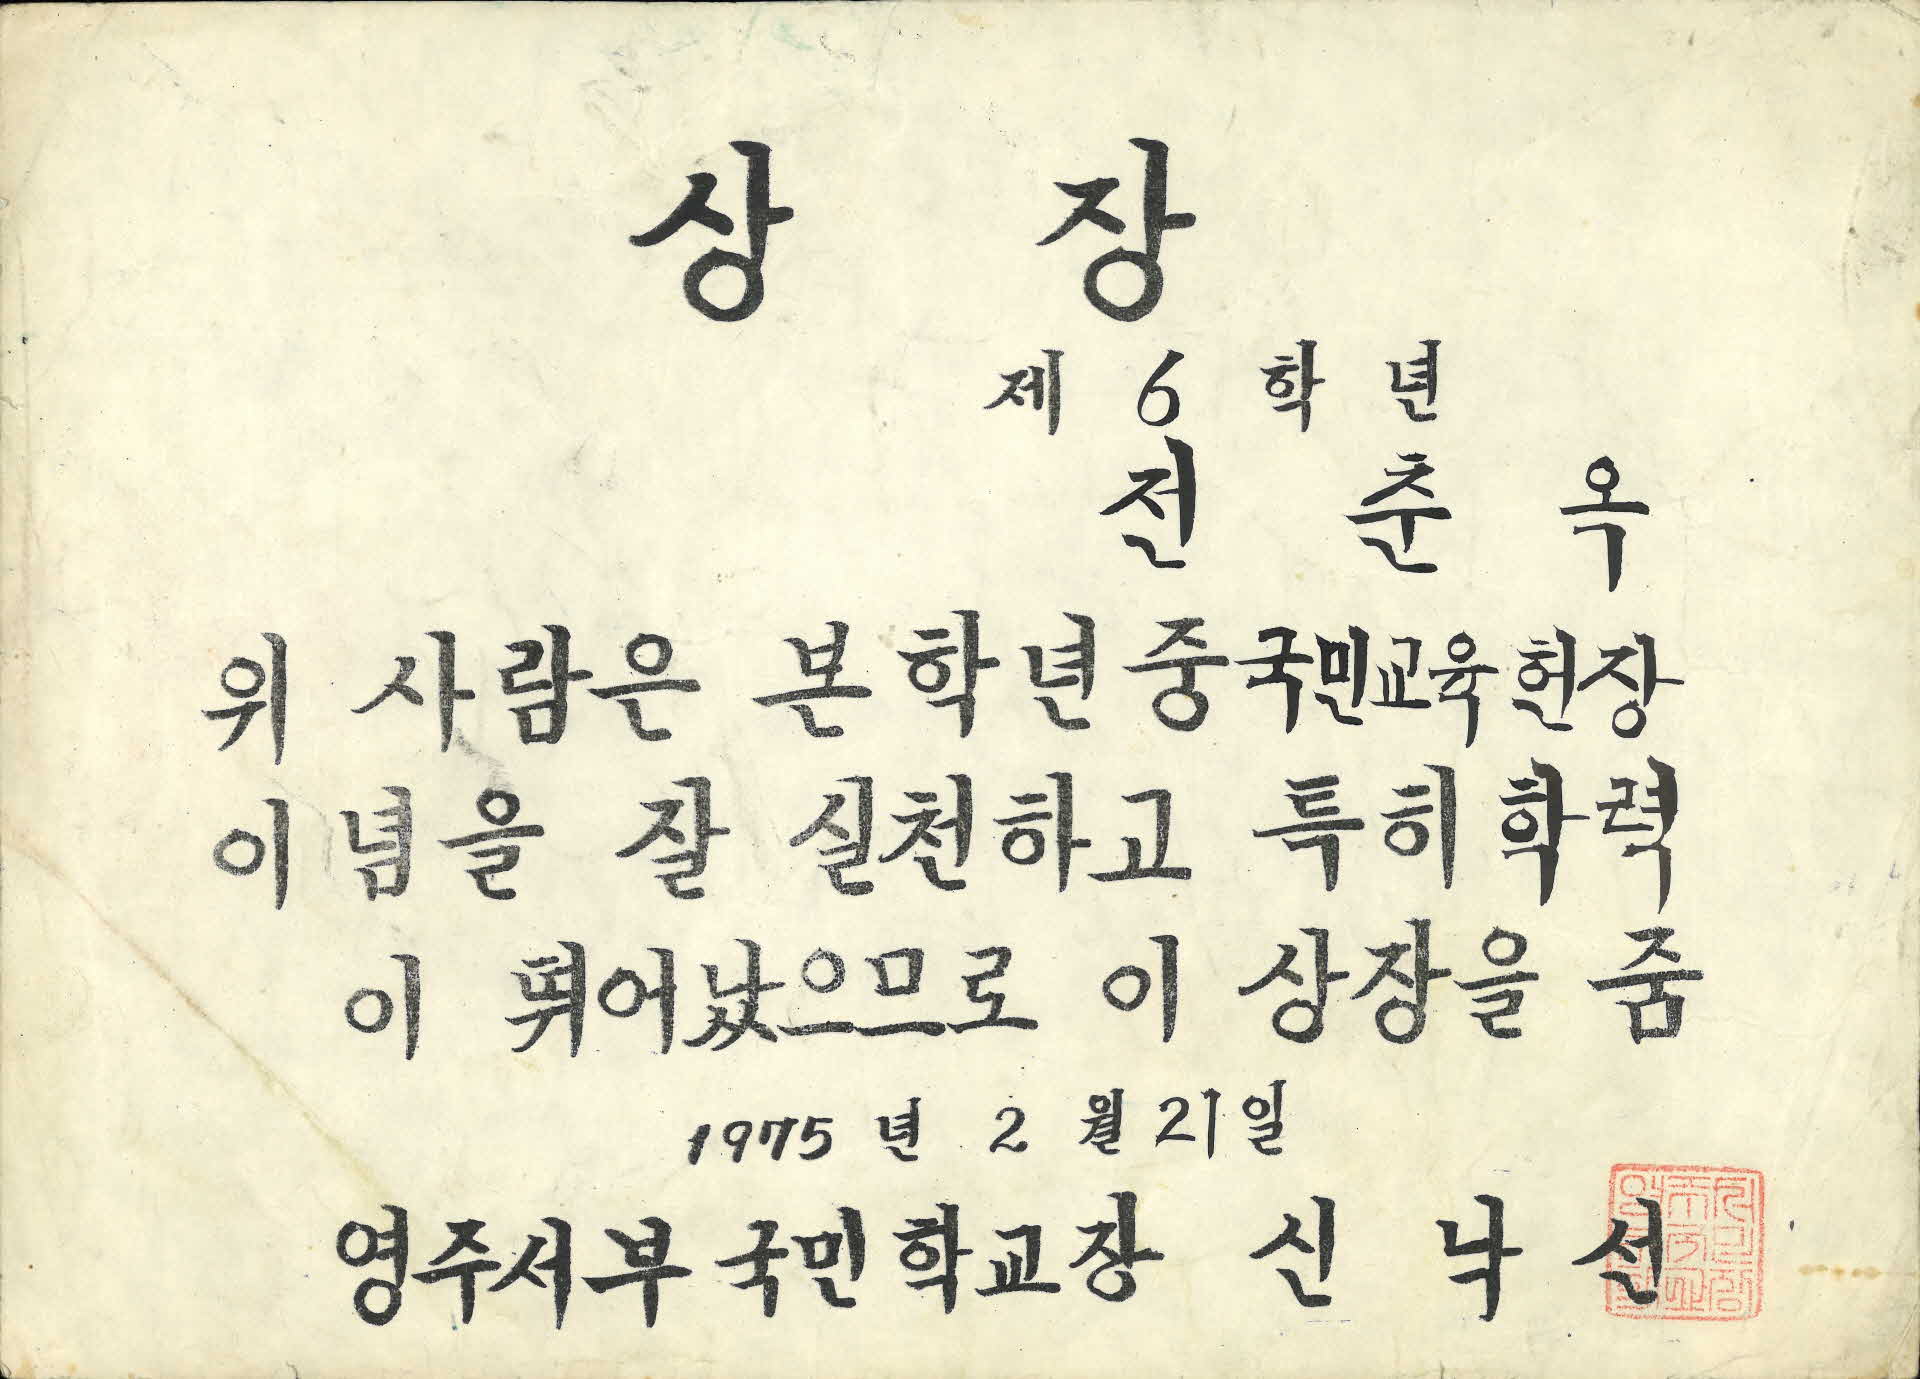 상 장
제 6 학 년
전 춘 옥
위 사람은 본학년중국민교육헌장
이념을 잘 실천하고 특히학력
이 뛰어났으므로 이 상장을 줌
1975 년 2 월 21 일
영주서부국민학교장 신 낙 선